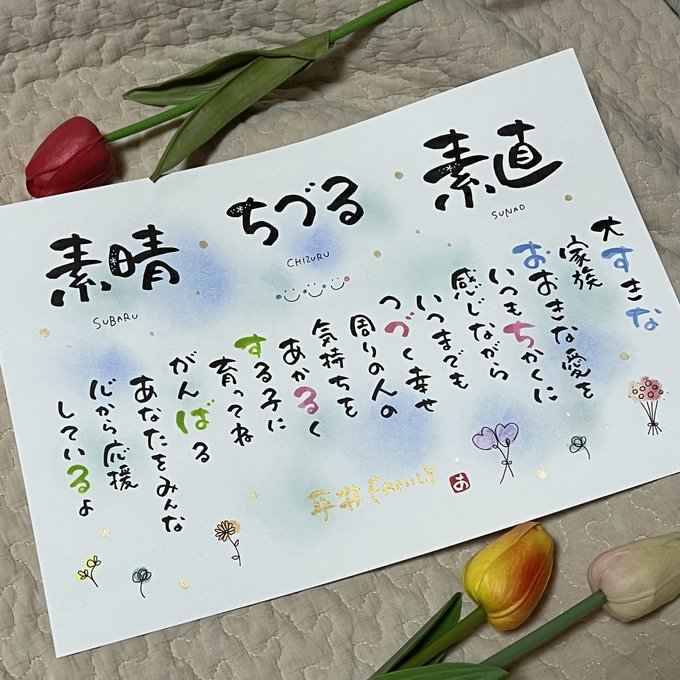 素直
SUNAO
ちづる
CHIZURU
素晴
SUBARU
大すきな
家族
おおきな愛を
いつもちかくに
感じながら
いつまでも
つづく幸せ
周りの人の
気持ちを
あかるく
する子に
育ってね
がんばる
あなたをみんな
心から応援
しているよ
平井 FAMILY
あ